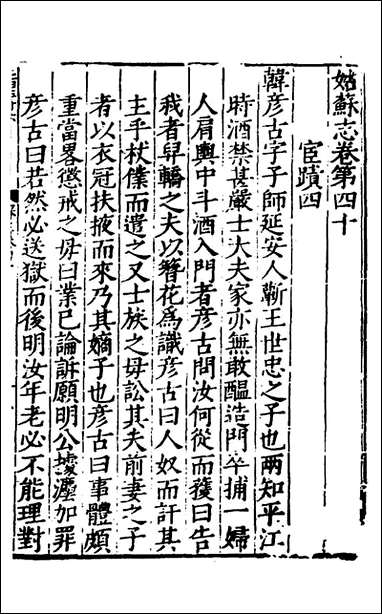 姑蘇志卷第四十
宦蹟四
韓彦古字子師延安人蘄王世忠之子也兩知平江
時酒禁甚嚴士大夫家亦無敢醖造門卒捕一婦
人肩輿中斗酒入門者彦古問汝何從而獲曰告
我者舁轎之夫以簪花爲識彦古曰人奴而訐其
主乎杖僕而遣之又士族之母訟其夫前妻之子
者以衣冠扶掖而來乃其嫡子也彦古曰事體頗
重當畧懲戒之母曰業已論訴願明公據瀝加罪
彦古曰若然必送獄而後明汝年老必不能理對